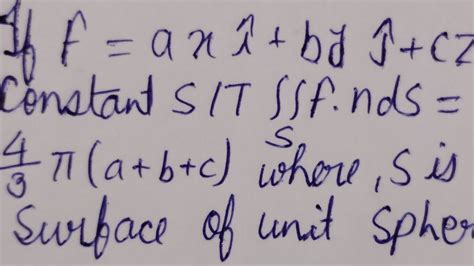 If f = axî + byĵ + cz
Constant S/T ∫∫f.nds =
S
4/3 π(a+b+c) where, S is
Surface of unit spher